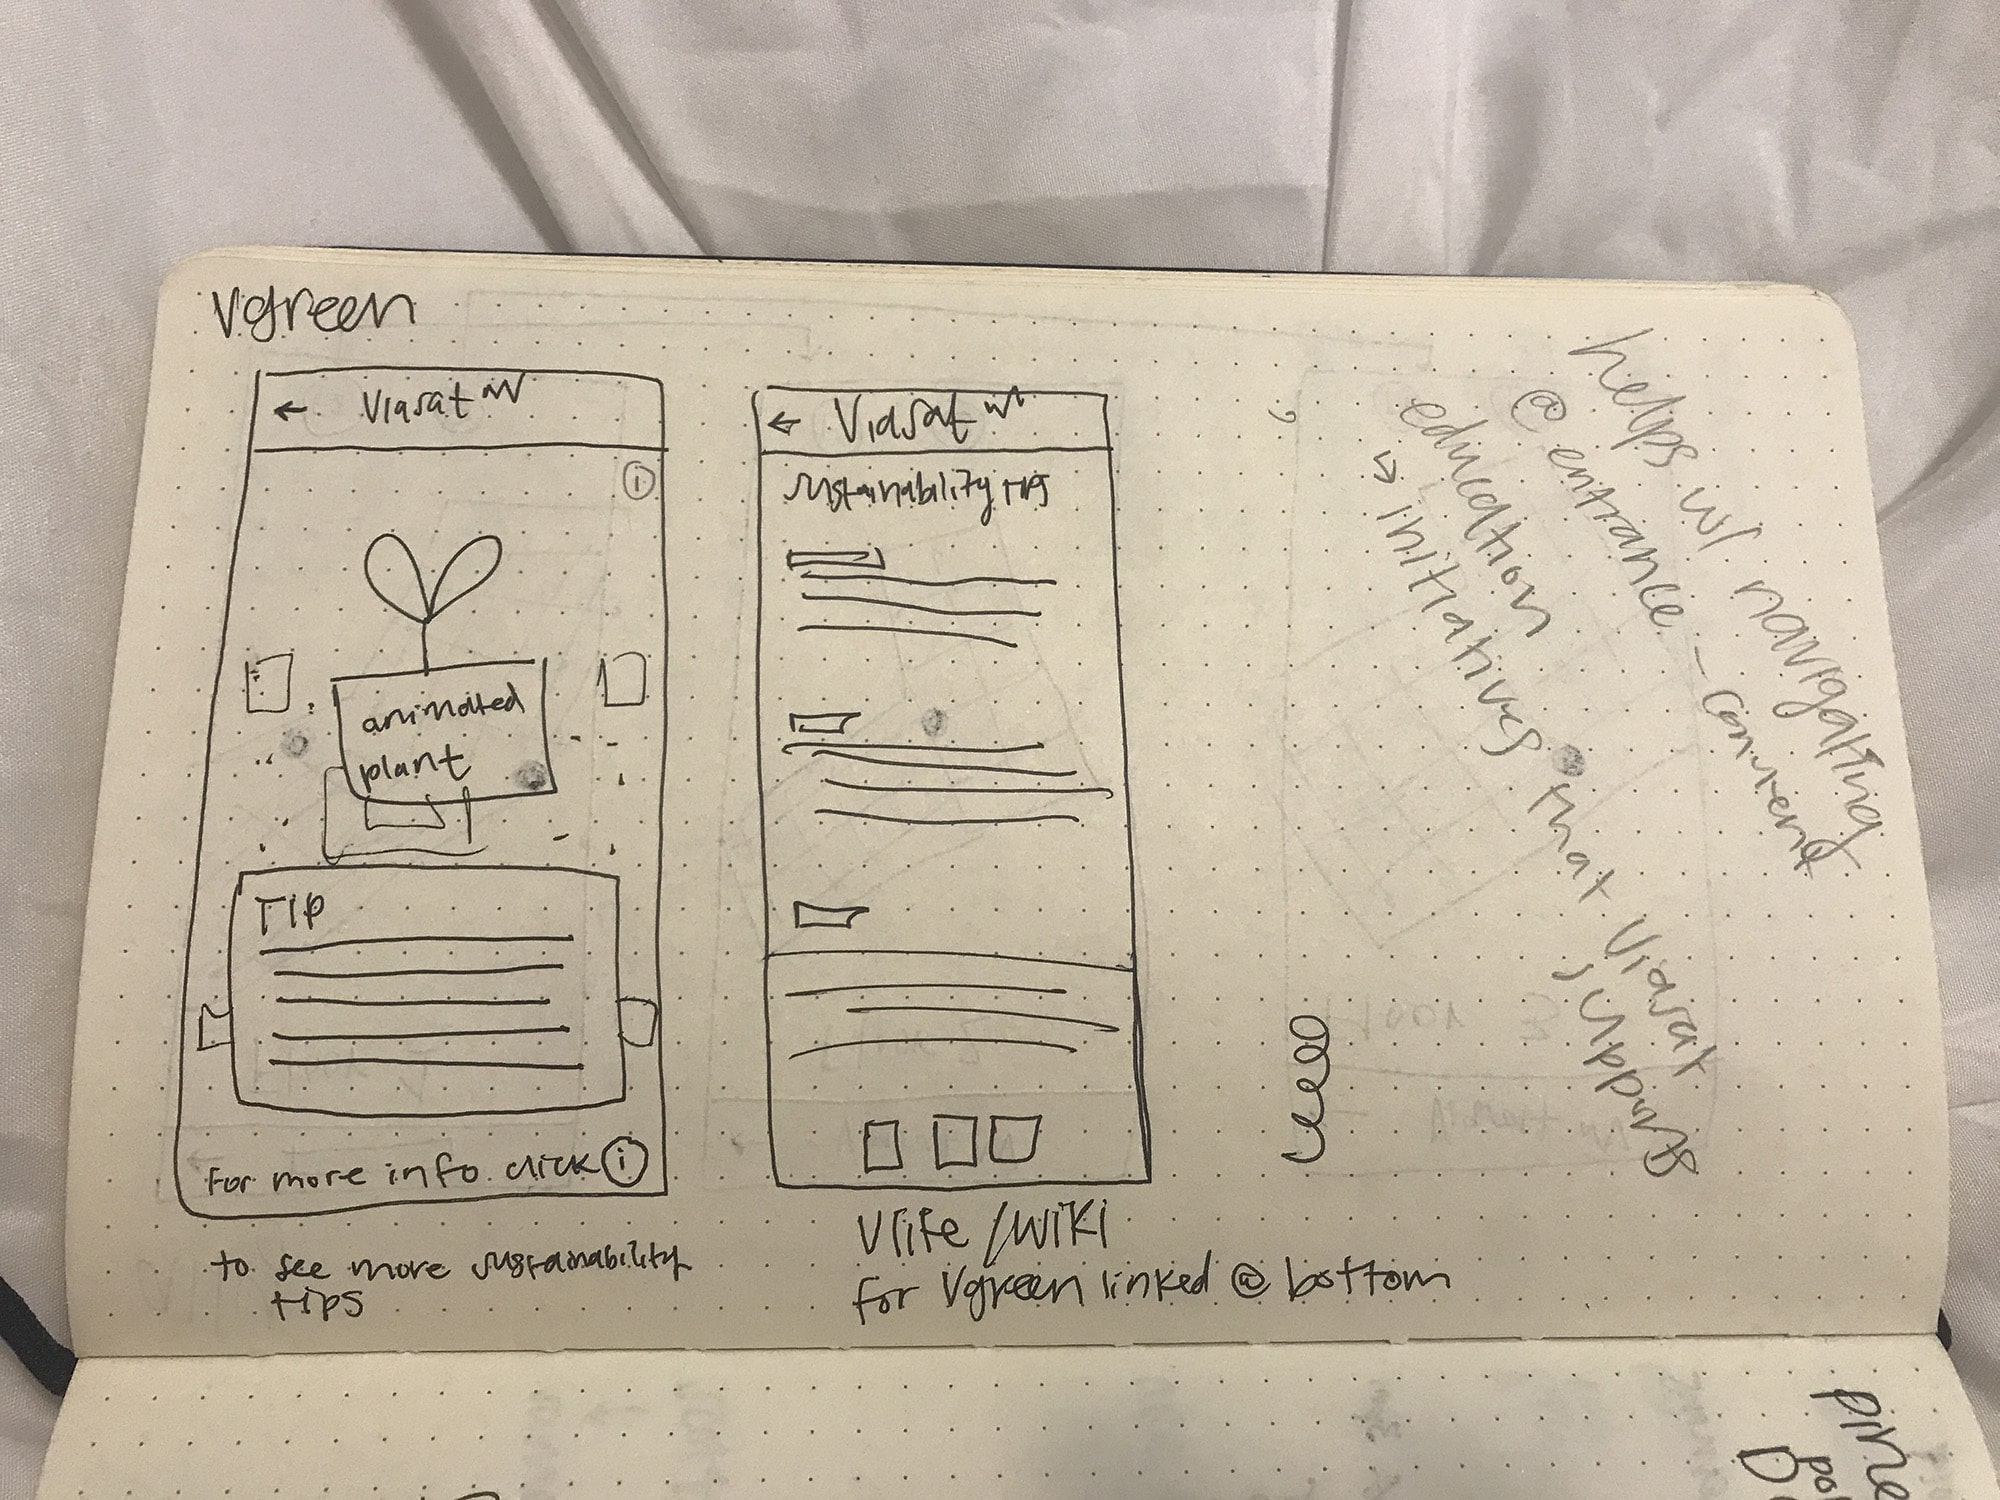 Vgreen
← Viasat
i
animated
plant
TIP
For more info click i
to see more sustainability
tips
← Viasat
sustainability tips
Vlife / Wiki
for Vgreen linked @ bottom
helps w/ navigating
@ entrance -
education
→ initiatives that Viasat
supports